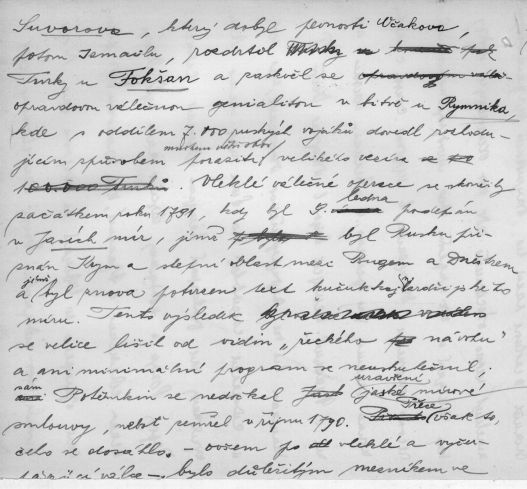 Suvorova, který dobyl pevnosti Očakova,
potom Izmailu, rozdrtil Turky u
Fokšan a zaskvěl se
opravdovou válečnou genialitou v bitvě u Rymnika,
kde s oddílem 7.000 ruských vojáků dovedl rozhodu-
jícím způsobem poraziti velikého vezíra
100.000 Turků. Vleklé válečné operace se skončily
začátkem roku 1791, kdy byl 9. ledna podepsán
v Jasích mír, jímž byl Rusku při-
znán Krym a stepní oblast mezi Bugem a Dněstrem
a jímž byl znova potvrzen text kučukkajnardžijského
míru. Tento výsledek
se velice lišil od vidin „řeckého návrhu"
a ani minimální program se neuskutečnil;
sám Potěmkin se nedočkal uzavření jasské mírové
smlouvy, neboť zemřel v říjnu 1790. Přece však to,
čeho se dosáhlo, – ovšem po vleklé a vyčer-
pávající válce –, bylo důležitým mezníkem ve